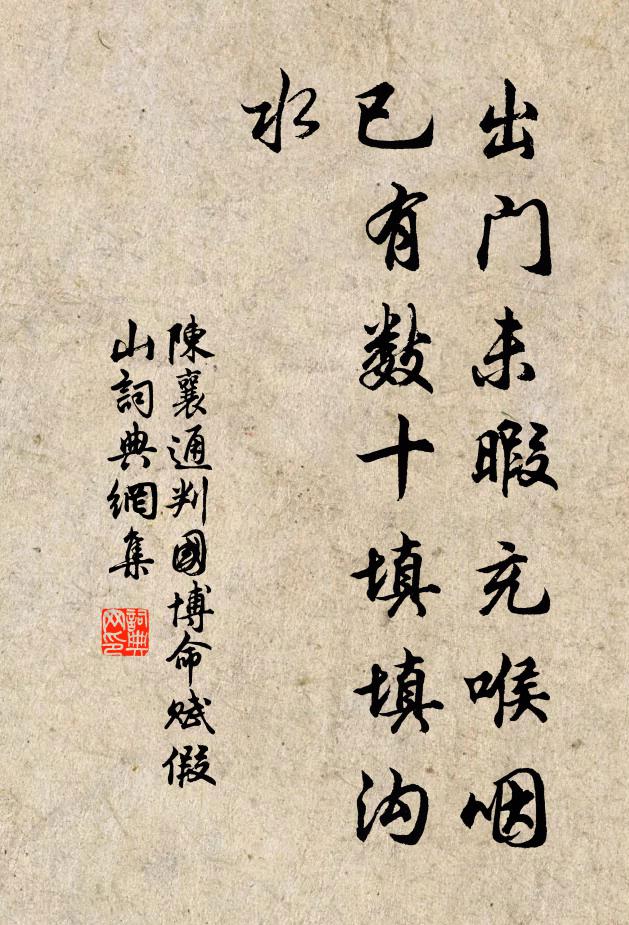 出门未暇充喉咽
已有数十填填沟
水
陳襄通判國博命赋假
山詞典網集
詞典
网印